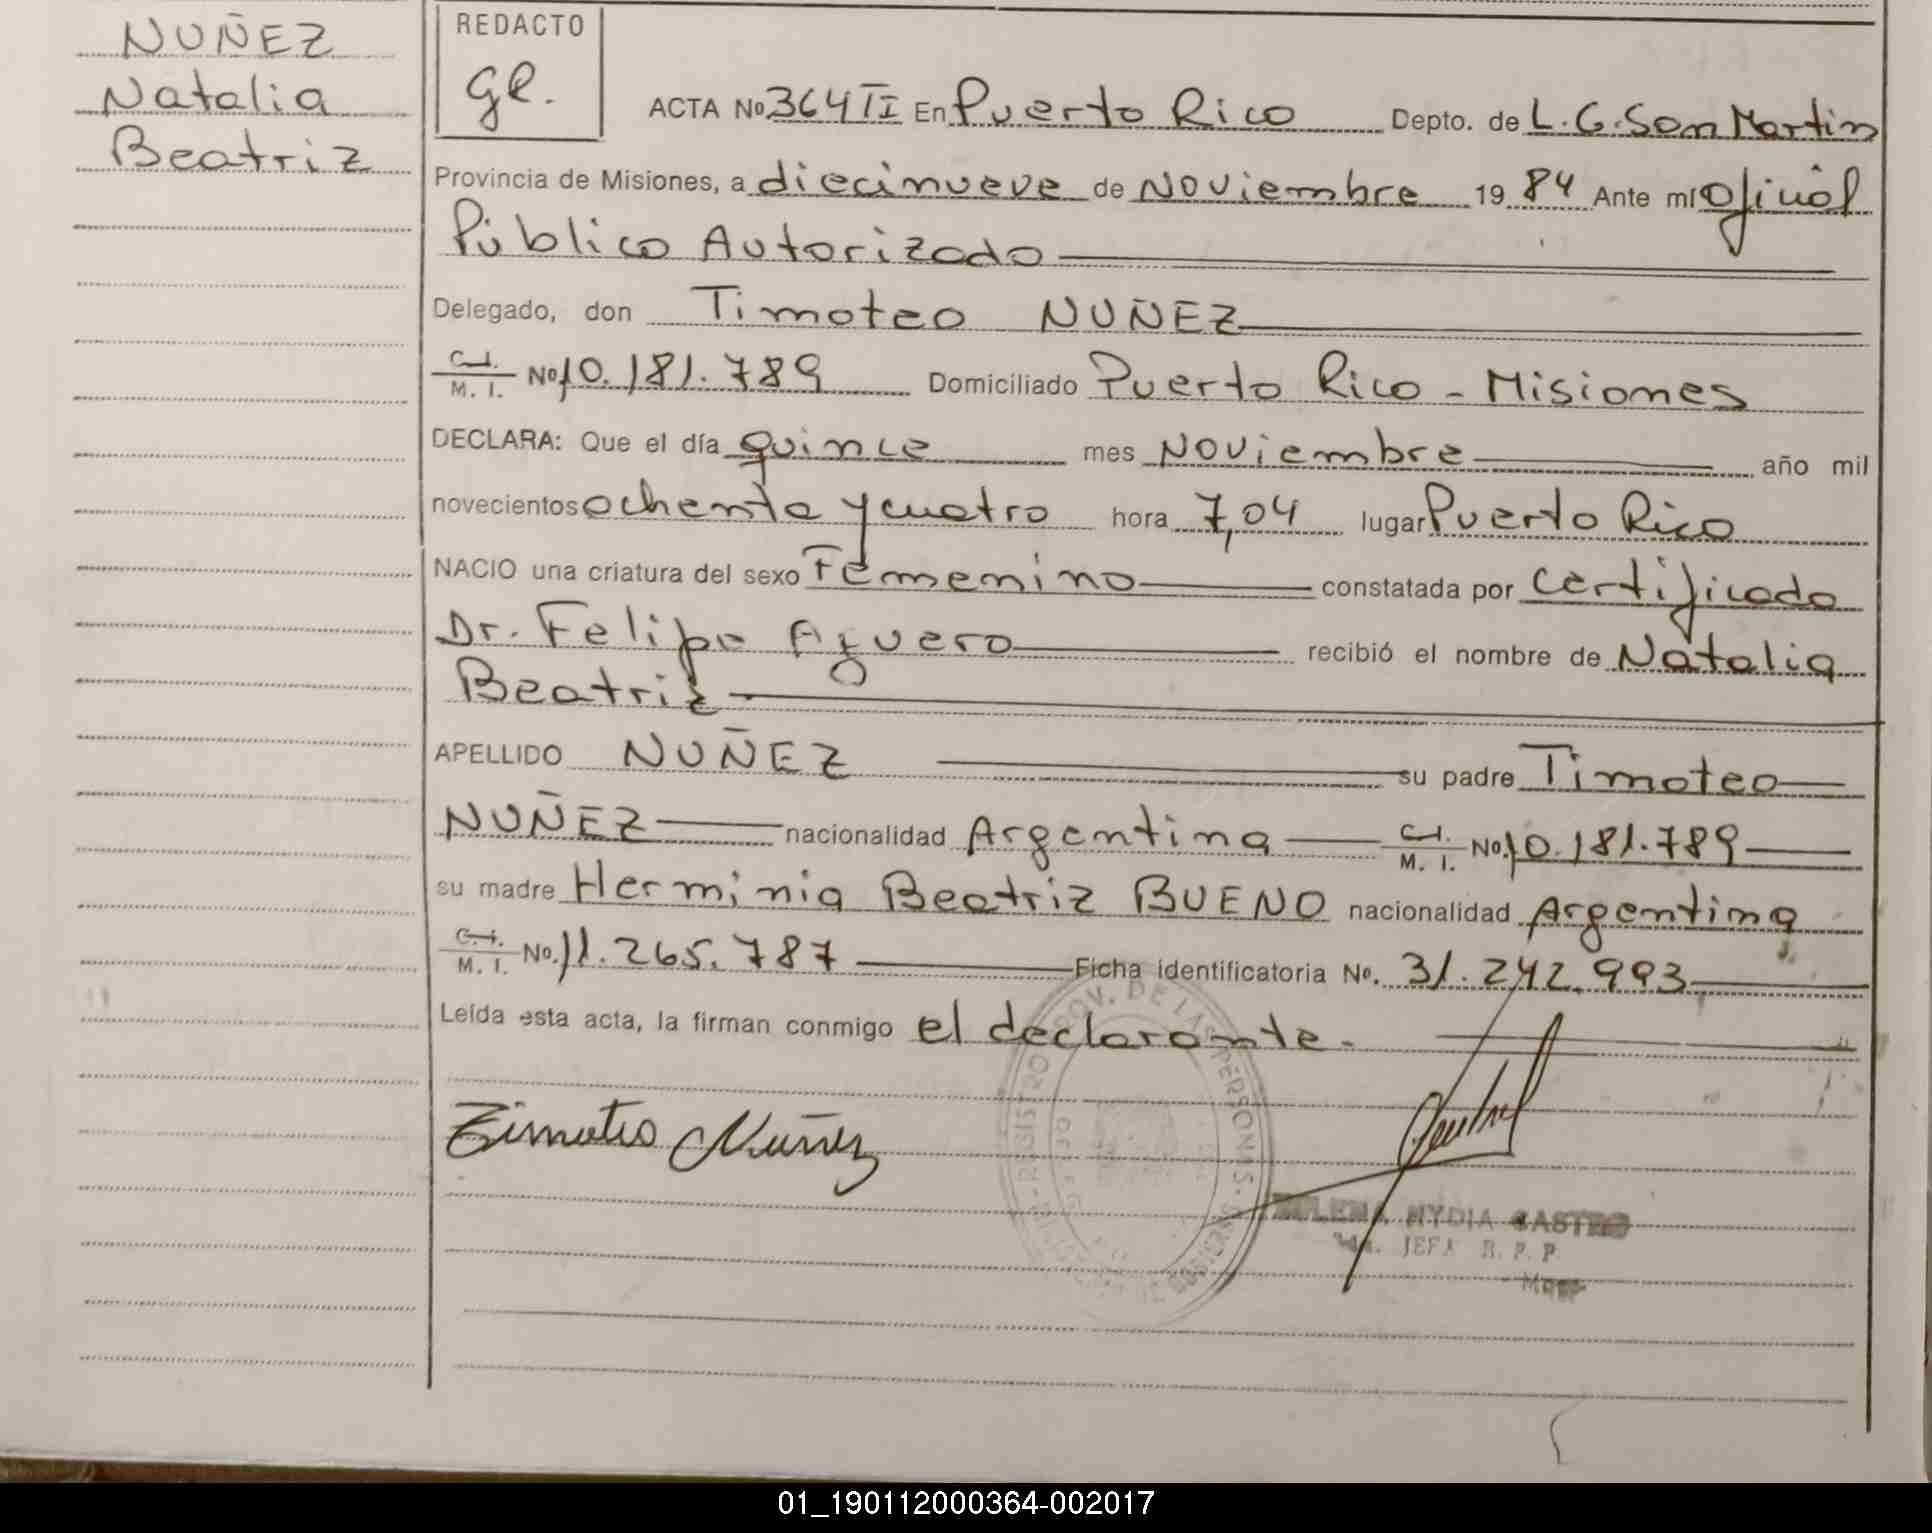 NUÑEZ
Natalia
Beatriz
REDACTO
ACTA Nº 364 TI En Puerto Rico Depto. de L. G. San Martin
Provincia de Misiones, a diecinueve de Noviembre 19 84 Ante mí Oficial
Público Autorizado
Delegado, don Timoteo NUÑEZ
C.I. / M. I. Nº 10.181.789 Domiciliado Puerto Rico - Misiones
DECLARA: Que el día quince mes Noviembre año mil
novecientos ochenta y cuatro hora 7,04 lugar Puerto Rico
NACIO una criatura del sexo Femenino constatada por certificado
Dr. Felipe Aguero recibió el nombre de Natalia
Beatriz
APELLIDO NUÑEZ su padre Timoteo
NUÑEZ nacionalidad Argentina C.I. / M. I. No. 10.181.789
su madre Herminia Beatriz BUENO nacionalidad Argentina
C.I. / M. I. No. 11.265.787 Ficha identificatoria Nº. 31.242.993
Leída esta acta, la firman conmigo el declarante.
Timoteo Nuñez
REGISTRO PROV. DE LAS PERSONAS
NYDIA CASTRO
JEFA R. P. P.
01_190112000364-002017